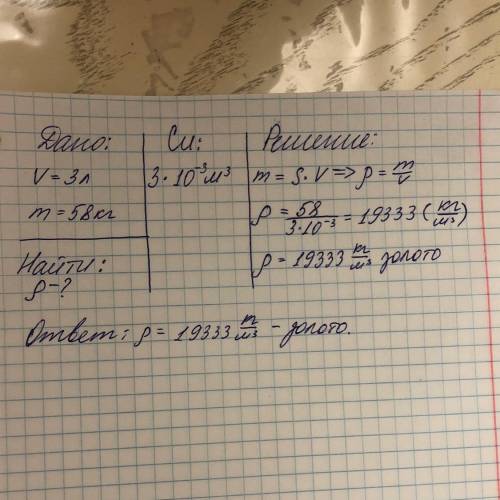 Дано:
V = 3л
m = 58кг
Найти:
ρ - ?
Си:
3·10⁻³м³
Решение:
m = ρ·V => ρ = m/v
ρ = 58/3·10⁻³ = 19333 (кг/м³)
ρ = 19333 кг/м³ золото
Ответ: ρ = 19333 т/м³ - золото.